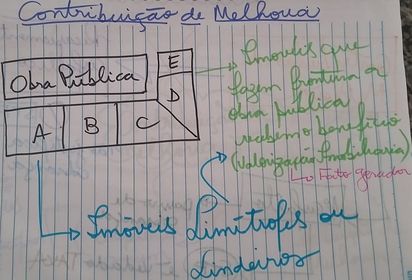 Contribuição de Melhoria
Obra Pública
E
D
A
B
C
Imóveis que
fazem fronteira a
obra pública
recebem o benefício
(Valorização Imobiliária)
Fato gerador
Imóveis Limítrofes ou
Lindeiros